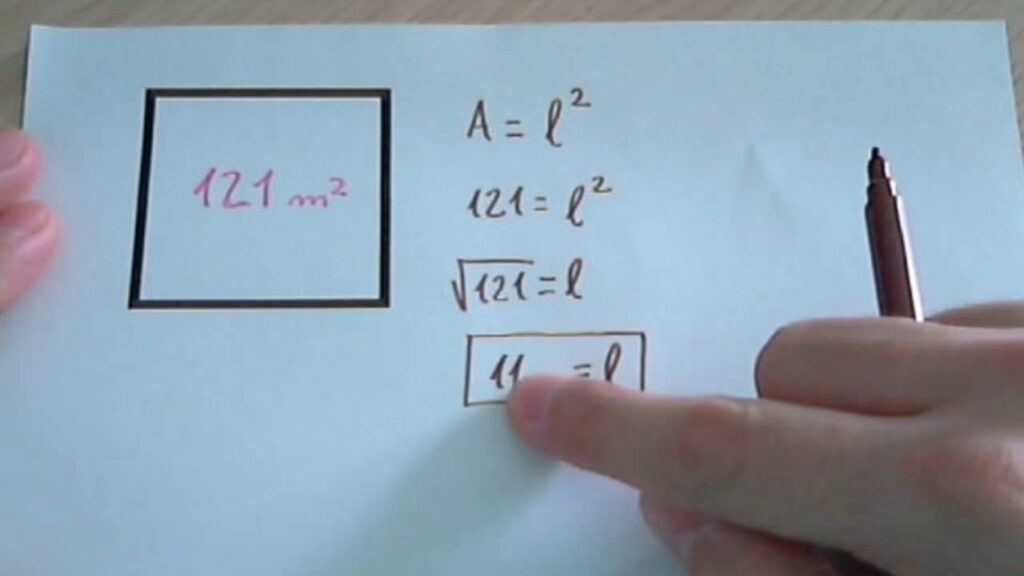 121 m²
A = l²
121 = l²
√121 = l
11 = l